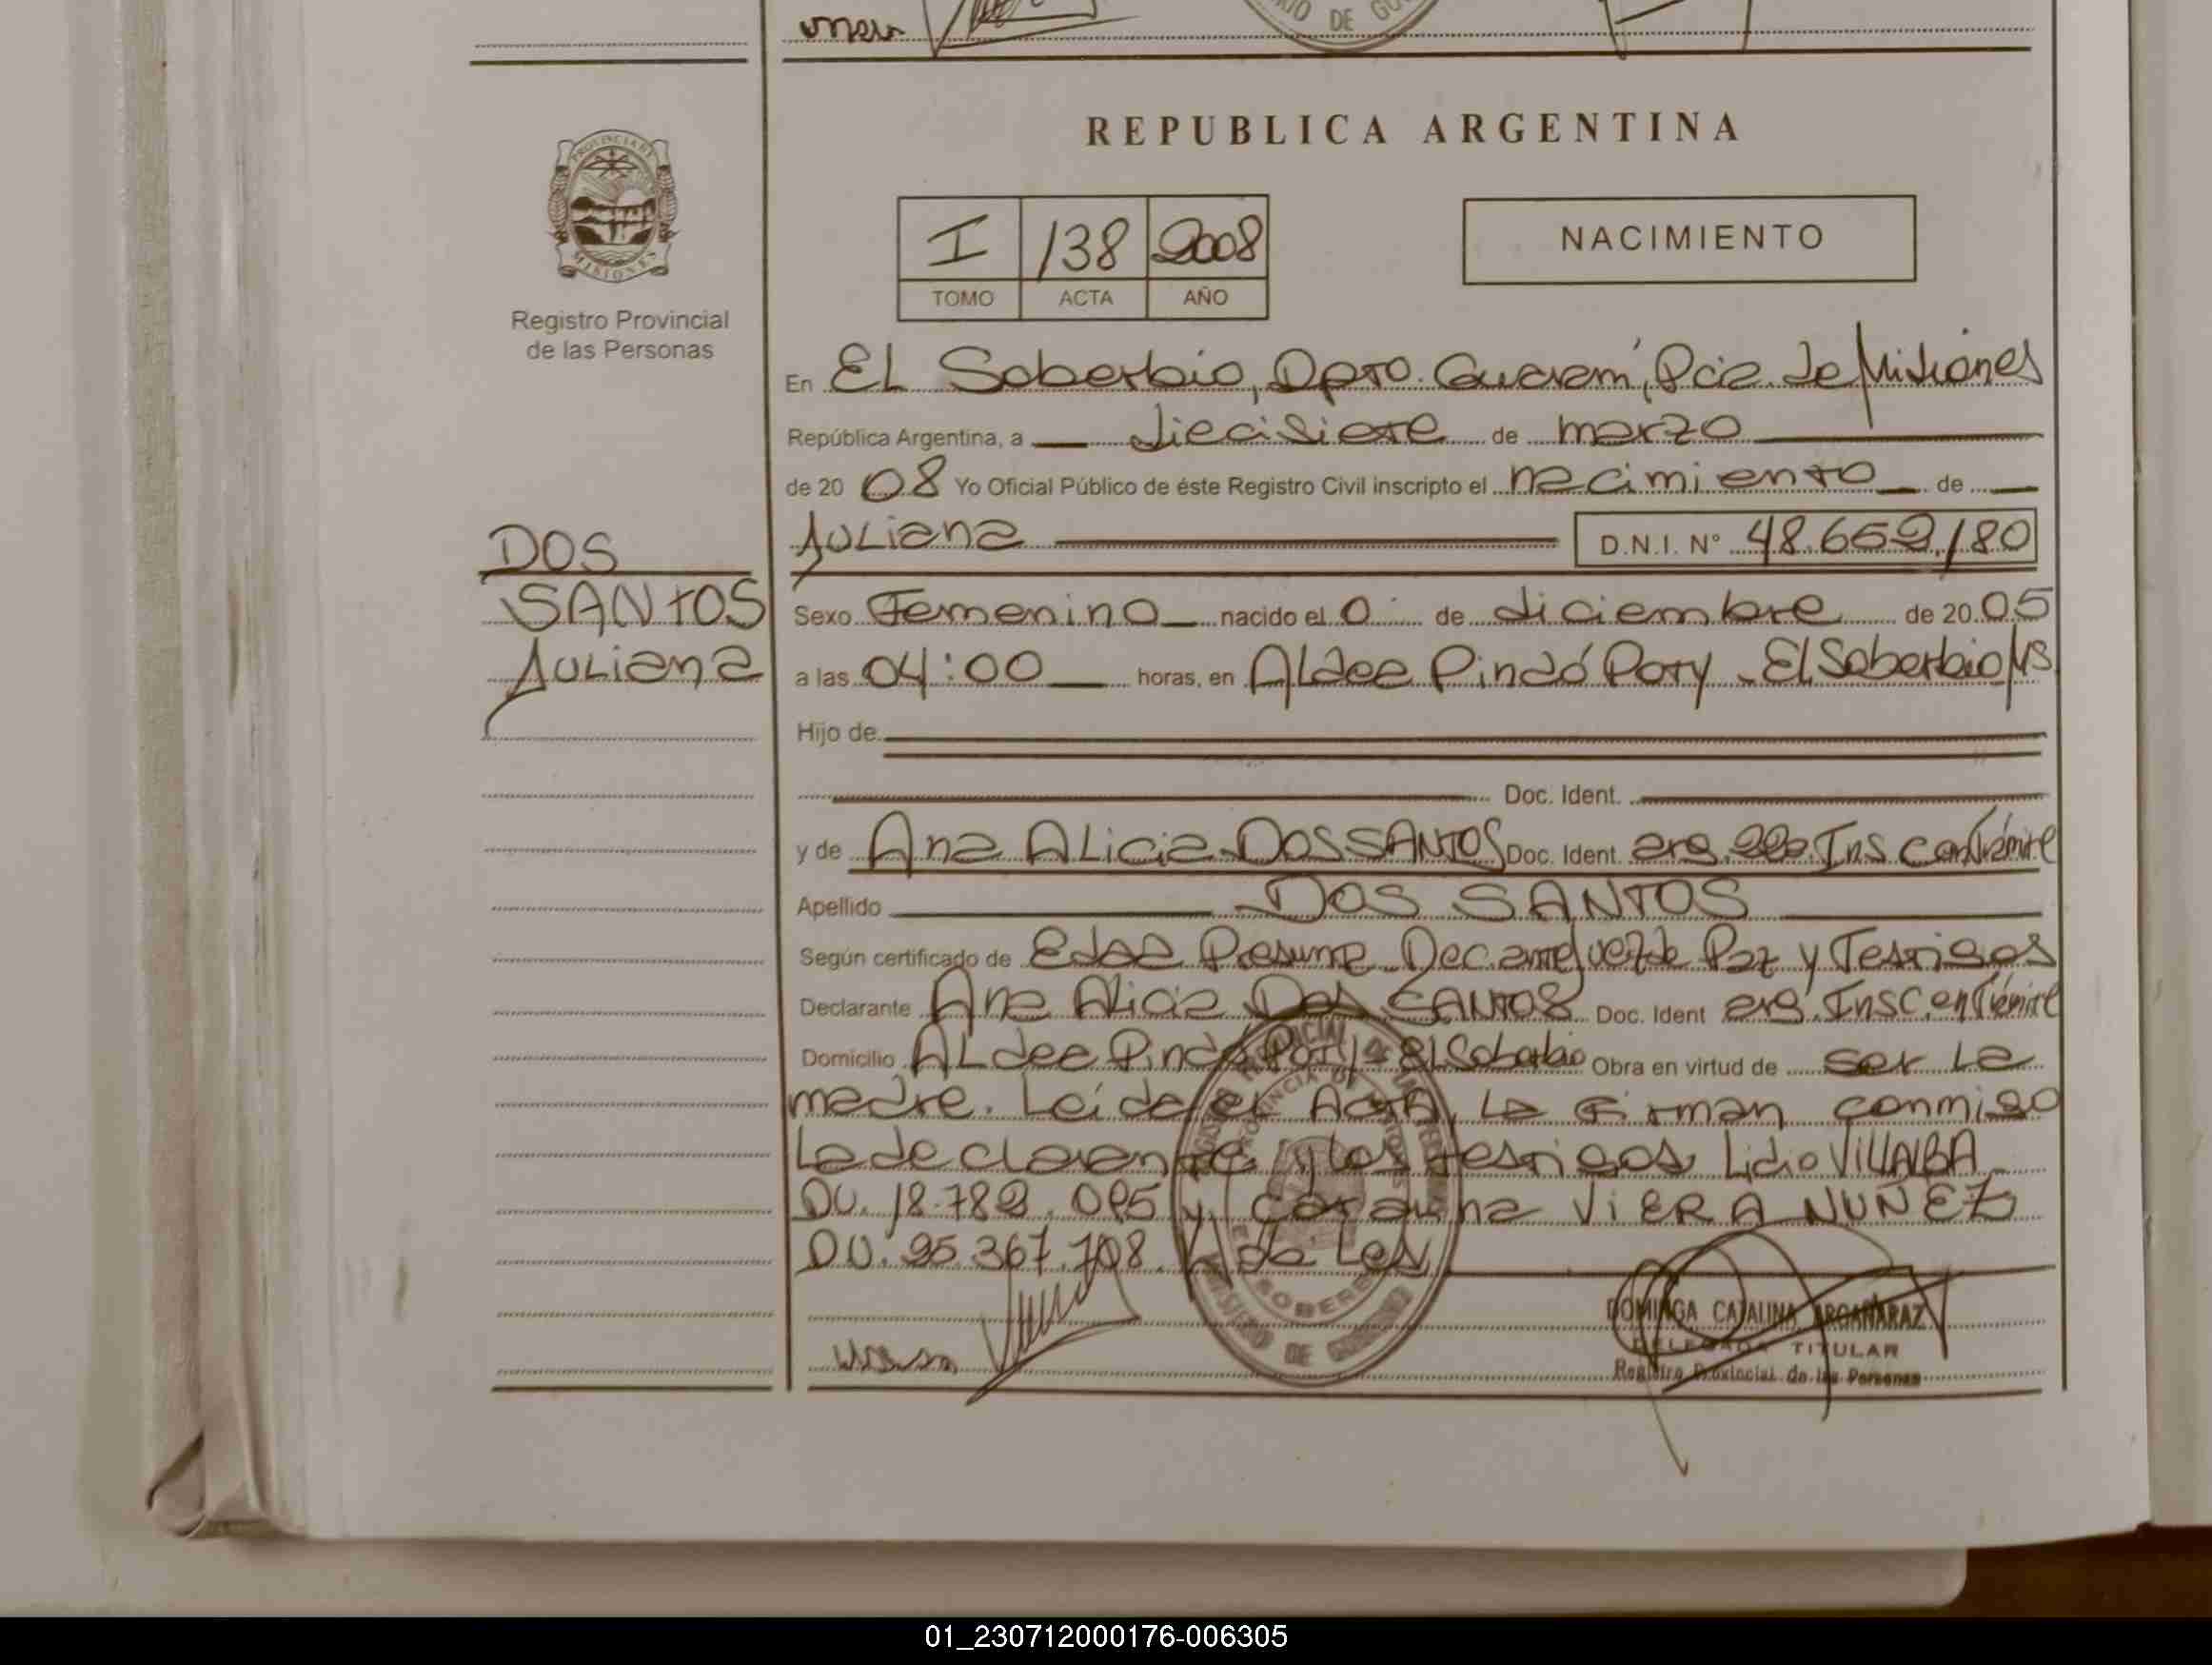 unesa
DE
REPUBLICA ARGENTINA
PROVINCIA DE
MISIONES
I 138 2008
TOMO ACTA AÑO
NACIMIENTO
Registro Provincial
de las Personas
En El Soberbio, Dpto. Guaraní, Pcia. de Misiones
República Argentina, a diecisiete de marzo
de 2008 Yo Oficial Público de éste Registro Civil inscripto el nacimiento de
Juliana D.N.I. Nº 48.659.180
DOS
SANTOS
Juliana
Sexo Femenino nacido el 0 de diciembre de 2005
a las 04:00 horas, en Aldea Pindó Poty - El Soberbio Ms
Hijo de
Doc. Ident.
y de Ana Alicia DOS SANTOS Doc. Ident. arg. Ins con Trámite
Apellido DOS SANTOS
Según certificado de Edad Presunta Dec. ante Juez de Paz y Testigos
Declarante Ana Alicia Dos SANTOS Doc. Ident arg. Insc. en Trámite
Domicilio Aldea Pindó Poty - El Soberbio Obra en virtud de ser la
madre. Leída el Acta, la firman conmigo
la declarante y los testigos Lidio VILLALBA
DU. 18.789.095 y VIERA NUÑEZ
DU. 95.367.708. de Ley
DOMINGA CATALINA ARGAÑARAZ
DELEGADA TITULAR
Registro Provincial de las Personas
01_230712000176-006305